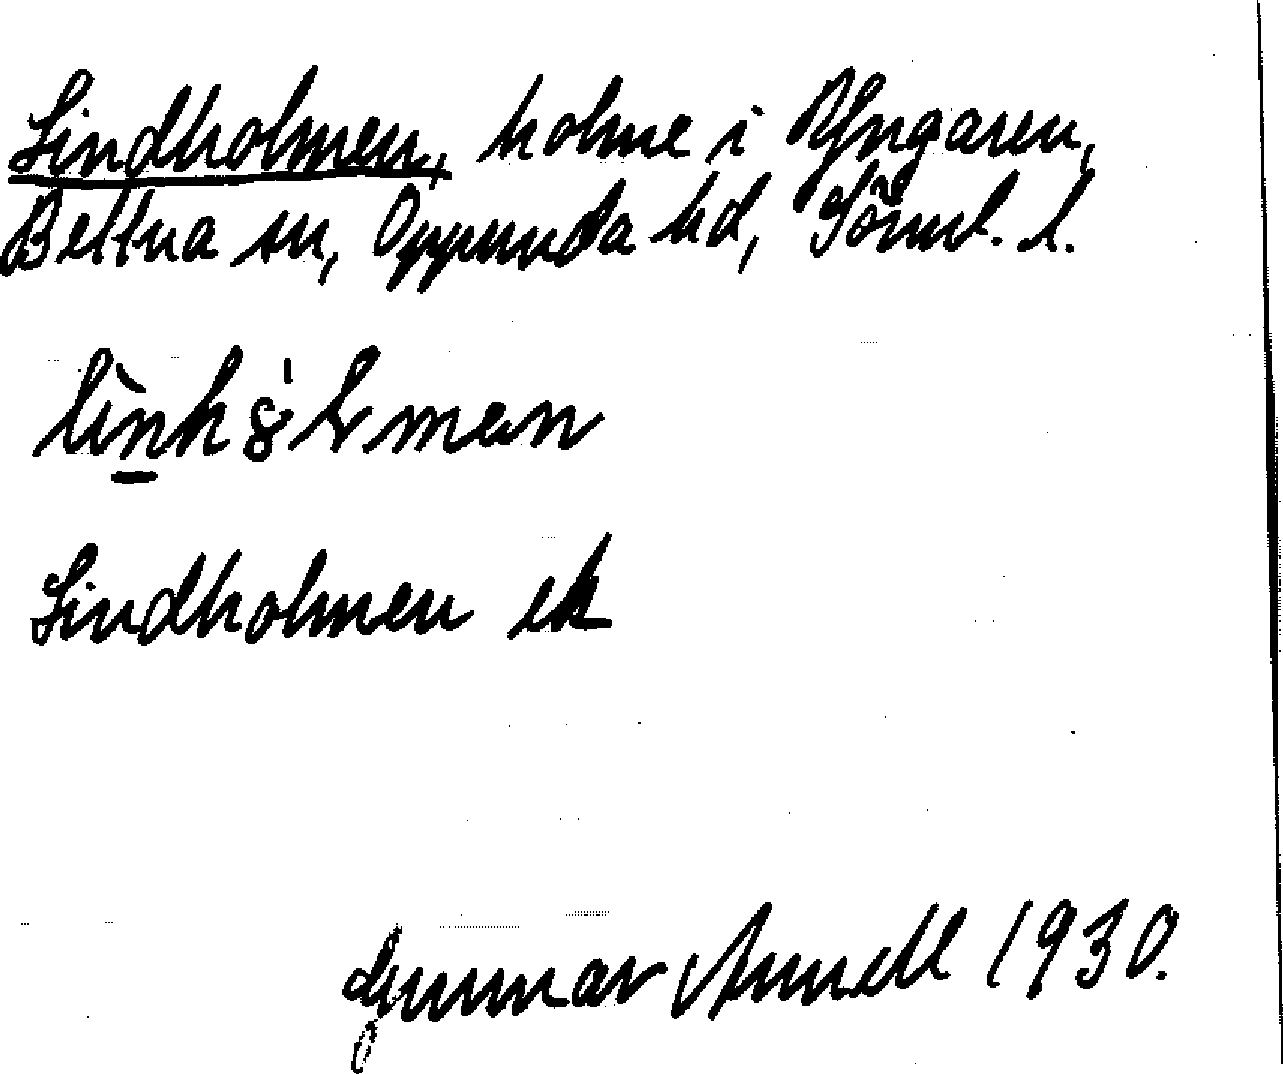 Lindholmen, holme i Yngaren,
Bettna sn, Oppunda hd, Sörml. l.
lìnhȣ̍lmen
Lindholmen ek
Gunnar Arnell 1930.